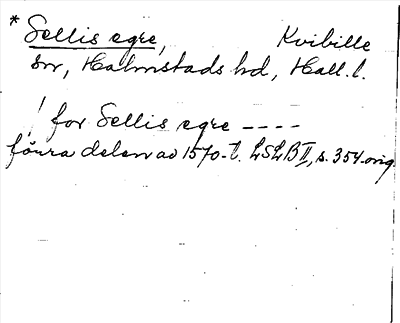 * Sellis egre, Kvibille
sn, Halmstads hd, Hall. l.
! for Sellis egre ----
förra delen av 1570-t. LSLB II, s. 354 orig.